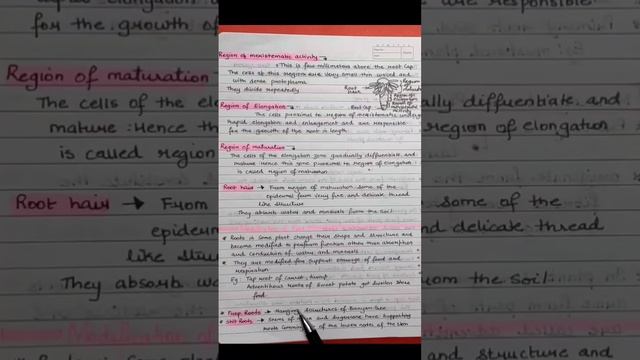 Region of meristematic activity
This is few millimeters above the Root Cap
The cells of this region are very small thin walled and
with dense protoplasm
They divide repeatedly
Root hair
Root Cap
Region of Elongation
The cells proximal to region of meristematic undergo
rapid elongation and enlargement and are responsible
for the growth of the root in length.
Region of maturation
The cells of the elongation zone gradually differentiate and
mature. Hence this zone proximal to region of elongation
is called region of maturation
Root hair → From region of maturation some of the
epidermal from very fine and delicate thread
like structure
They absorb water and minerals from the soil
Roots in some plant change their shape and structure and
become modified to perform function other than absorption
and conduction of water and minerals
They are modified for support storage of food and
respiration
Eg. Tap root of carrot, turnip
Adventitious roots of sweet potato get swollen store
food.
Prop Roots → Hanging structures of Banyan tree
Stilt Roots → Stems of and sugarcane have supporting
roots coming of the lower nodes of the stem
for the growth of
Region of maturation
The cells of the
mature. Hence
is called region
Root hair → From
like
They absorb wate
are responsible
ally differentiate and
region of elongation
Some of the
and delicate thread
from the soil